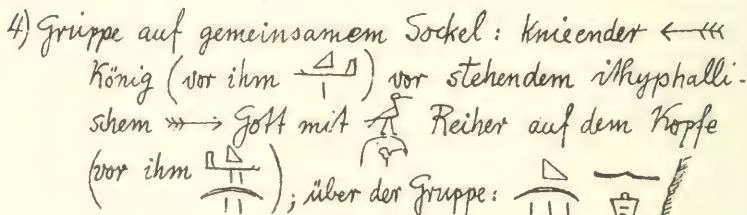 4) Gruppe auf gemeinsamem Sockel: Knieender
König (vor ihm ) vor stehendem ithyphalli-
schem Gott mit Reiher auf dem Kopfe
(vor ihm ); über der Gruppe: